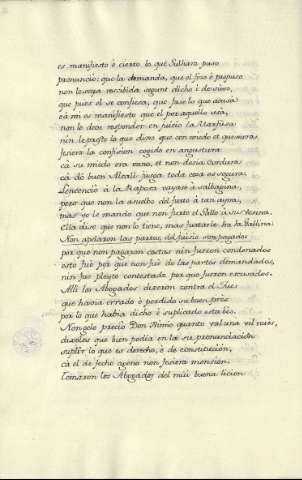 es manifiesto è cierto lo que Sulhara puso
pronunciò: que la demanda, que el fizo è propuso
non lo seya rescibida segunt dicho è de suso,
que pues él se confiesa, que fase lo que acusa
cà mi es manifiesto que el por aquello usa,
non le debe responder en juicio la Marfusa
nin le pasto lo que dixo que con miedo et quexura
fesiera la confesion cogido en angostura
cà su miedo era vano, et non desia cordura
cà dó buen Alcalle jusga toda cosa es segura.
Licencio à la Raposa vayase à salvagina,
pero que non la asuelbo del furto à tan ayna,
mas yo le mando que non furte el Gallo à su vesina.
Ella dise que non lo tiene, mas furtarle ha la Gallina.
Non apelaron las partes, del juicio son pagados
por que non pagaron costas nin fueron condenados
esto fuè por que non fue de las partes demandado,
nin fue pleyto contestado por que fueron escusados.
Alli los Abogados dixeron contra el Jues
que havia errado è perdido su buen pres
por lo que havia dicho è suplicado esta bes.
Non gelo precio Don Ximio quanto val una vil nués,
dixoles que bien podia en la su pronunciacion
suplir lo que es derecho, è de constitucion,
cà él de fecho ageno non fesiera mension.
Tomaron los Abogados del mui buena licion